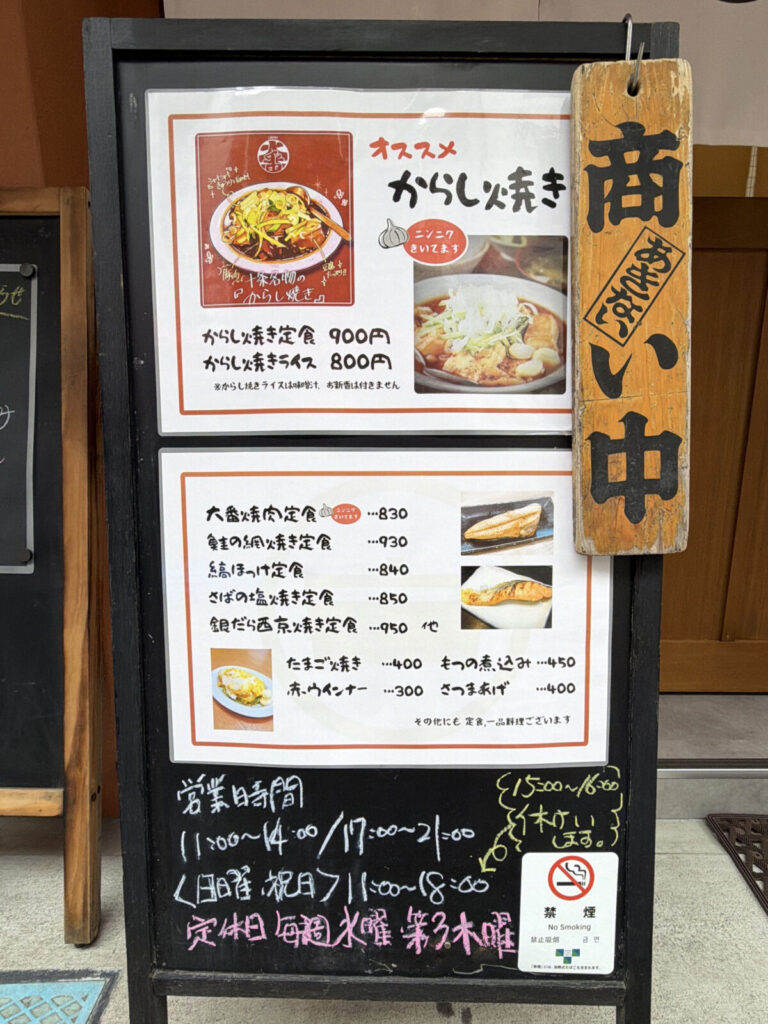 オススメ
からし焼き
ニンニク
きいてます
十条名物の
『からし焼き』
からし焼き定食 900円
からし焼きライス 800円
※からし焼きライスは味噌汁、お新香は付きません
商い中
あきない
大番焼肉定食 ニンニクきいてます …830
鮭の網焼き定食 …930
縞ほっけ定食 …840
さばの塩焼き定食 …850
銀だら西京焼き定食 …950 他
たまご焼き …400 もつの煮込み …450
赤ウインナー …300 さつまあげ …400
その他にも 定食,一品料理ございます
営業時間
11:00〜14:00/17:00〜21:00
<日曜、祝日>11:00〜18:00
15:00〜16:00
休けい
します。
定休日 毎週水曜 第3木曜
禁煙
No Smoking
禁止吸烟 금연
らせ